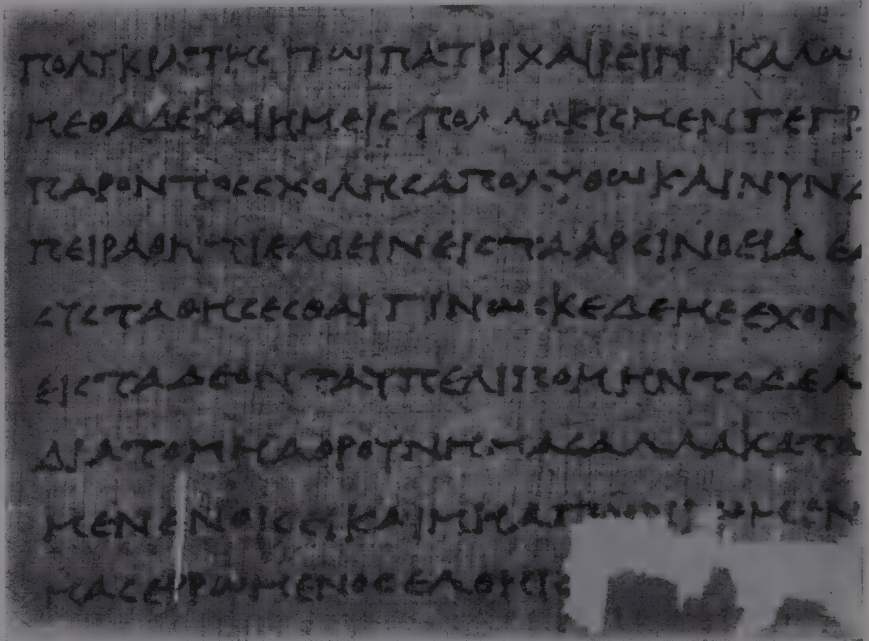 ΠΟΛΥΚΡΑΤΗΣ ΤΩΙ ΠΑΤΡΙ ΧΑΙΡΕΙΝ ΚΑΛΩ
ΜΕΘΑ ΔΕ ΚΑΙ ΗΜΕΙΣ ΠΟΛΛΑΚΙΣ ΜΕΝ ΓΕΓΡ
ΠΑΡΟΝΤΟΣ ΣΧΟΛΗΣ ΑΠΟΛΥΘΩ ΚΑΙ ΝΥΝ Δ
ΠΕΙΡΑΘΗΤΙ ΕΛΘΕΙΝ ΕΙΣ ΤΑ ΑΡΣΙΝΟΕΙΑ ΕΑ
ΣΥΣΤΑΘΗΣΕΣΘΑΙ ΓΙΝΩΣΚΕ ΔΕ ΜΕ ΕΧΟΝ
ΕΙΣ ΤΑ ΔΕΟΝΤΑ ΥΠΕΛΙΠΟΜΗΝ ΤΟ ΔΕ Λ
ΔΙΑ ΤΟ ΜΗ ΑΘΡΟΥΝ ΗΜΑΣ ΑΛΛΑ ΚΑΤΑ
ΜΕΝ ΕΝ ΟΙΣ ΕΙ ΚΑΙ ΜΗ ΑΓΩΝΙΩΜΕΝ
ΜΑΣ ΕΡΡΩΜΕΝΟΣ ΕΛΘΗΙΣ